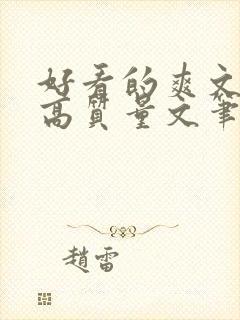 好看的爽文
高质量文笔
趙雷